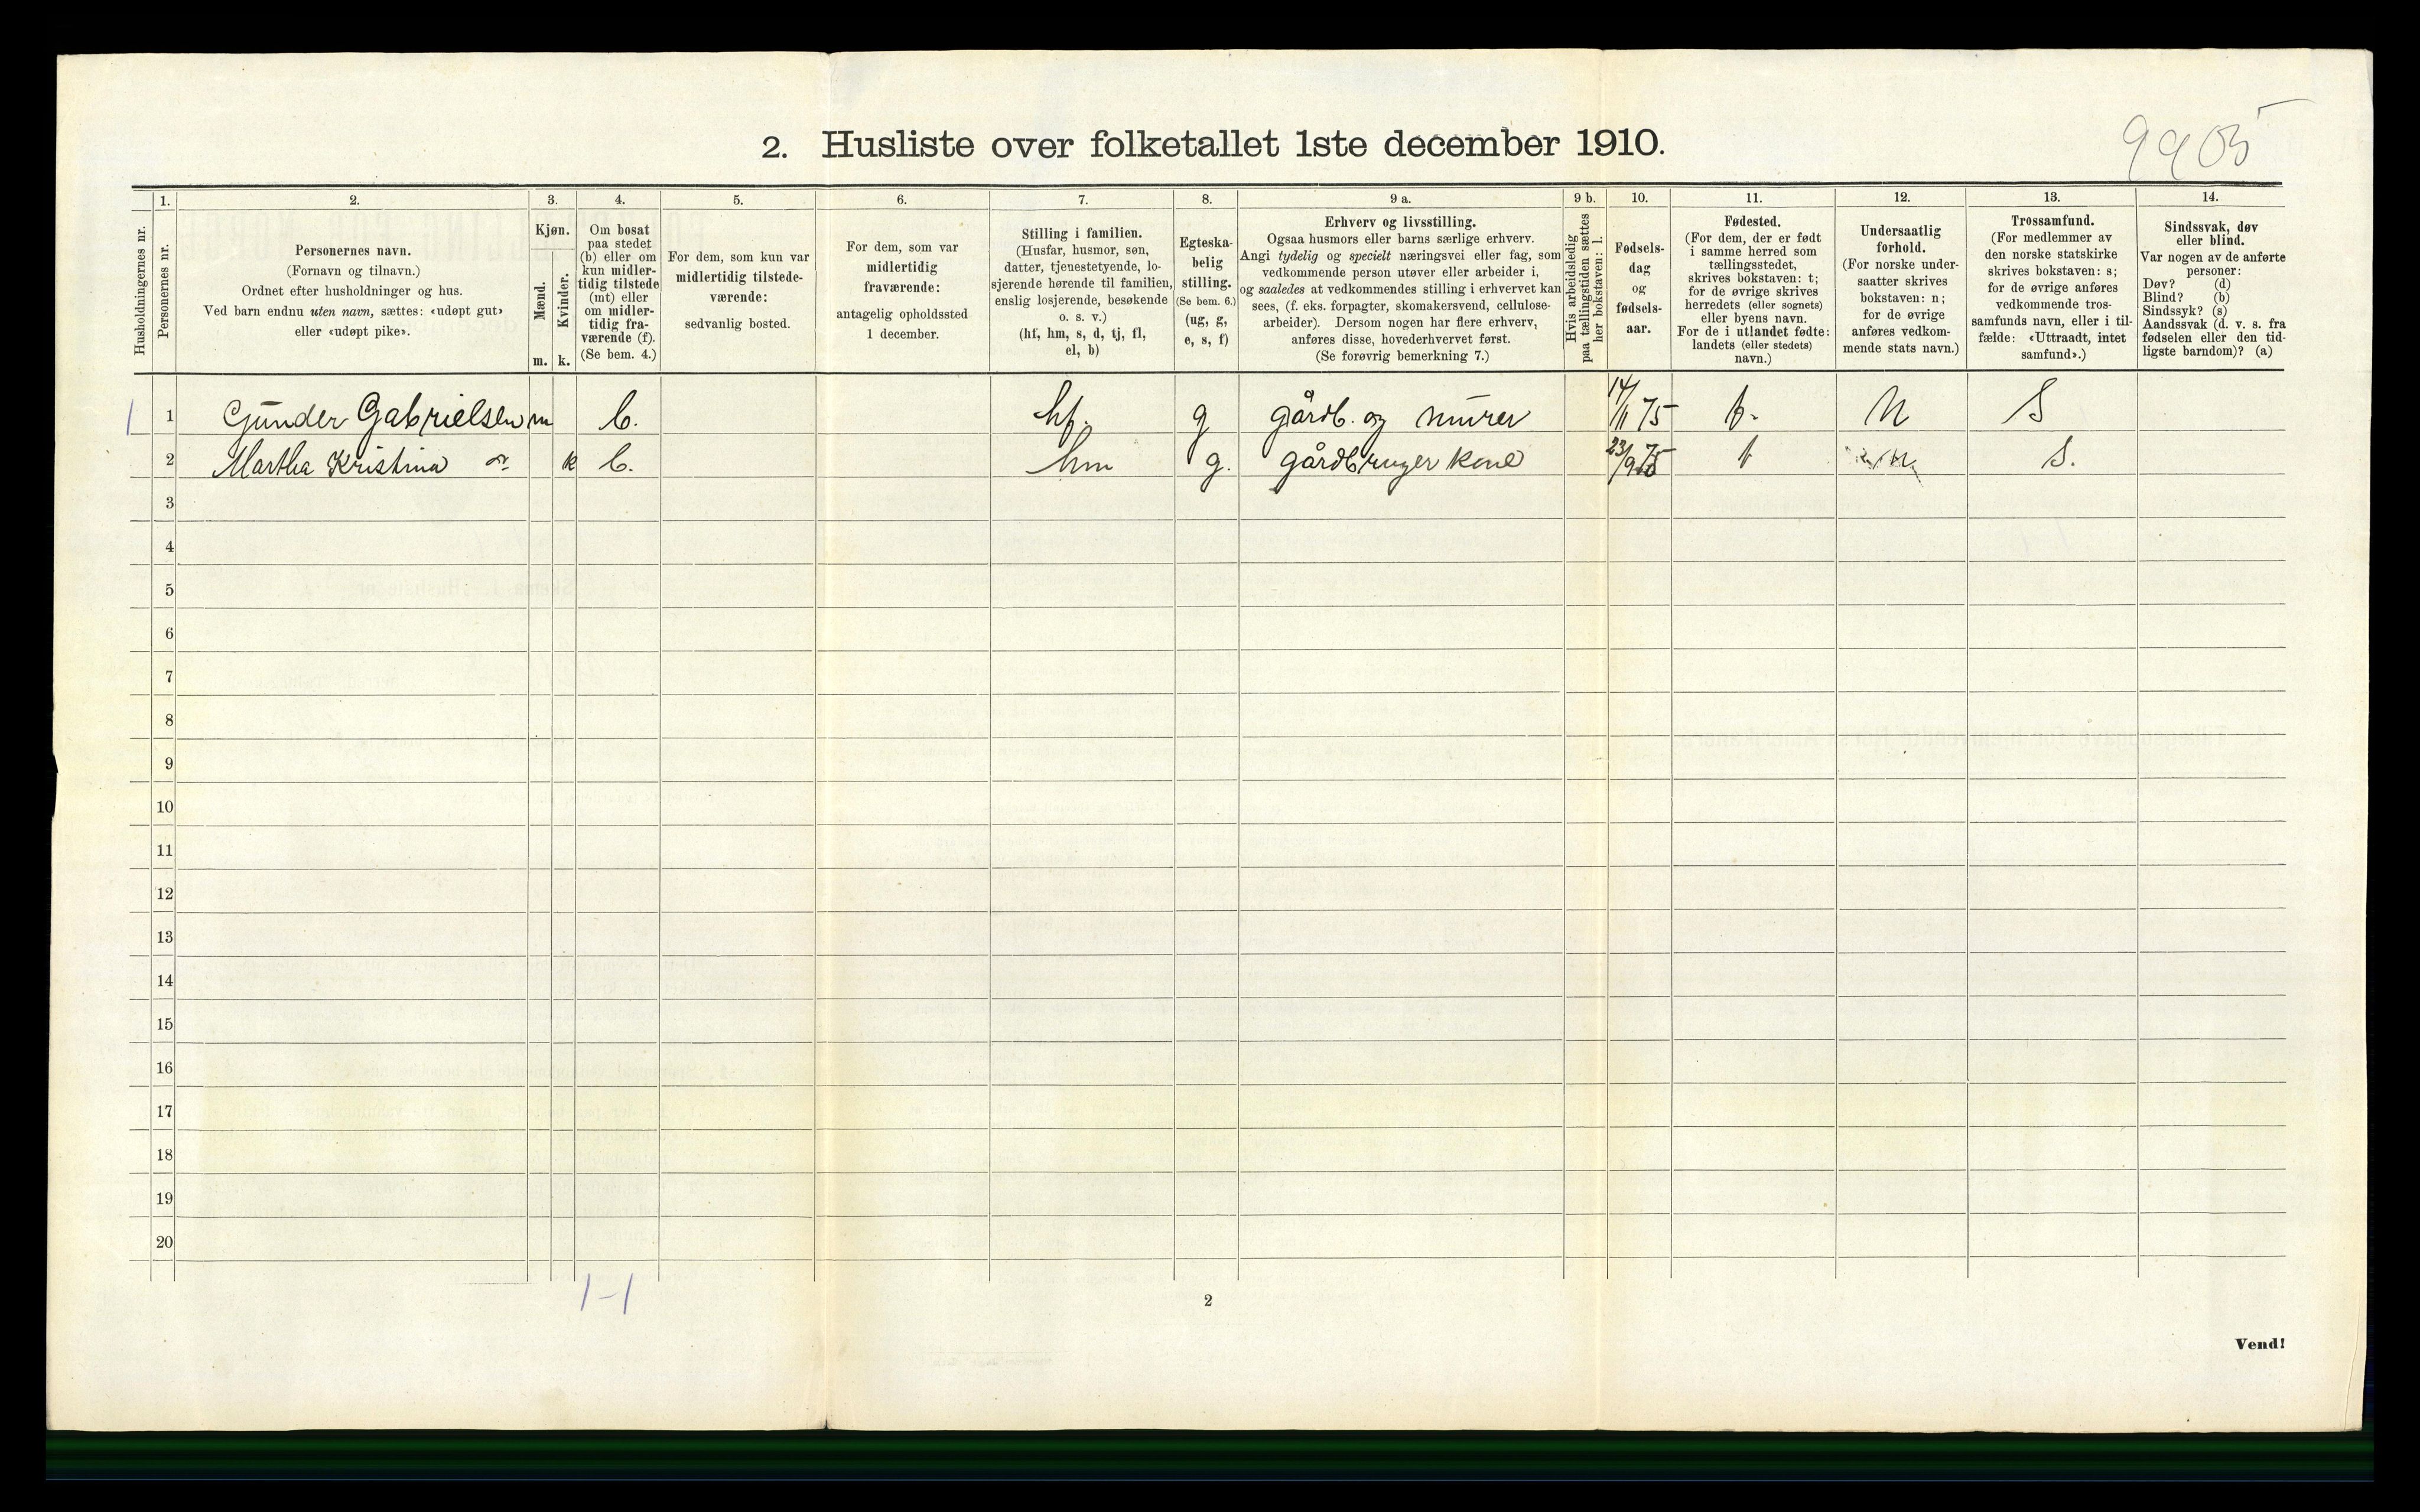 9905
2. Husliste over folketallet 1ste december 1910.
1. 2. 3. 4. 5. 6. 7. 8. 9 a. 9 b. 10. 11. 12. 13. 14.
Husholdningernes nr.
Personernes nr.
Personernes navn.
(Fornavn og tilnavn.)
Ordnet efter husholdninger og hus.
Ved barn endnu uten navn, sættes: «udøpt gut»
eller «udøpt pike».
Kjøn.
Mænd.
Kvinder.
m. k.
Om bosat
paa stedet
(b) eller om
kun midler-
tidig tilstede
(mt) eller
om midler-
tidig fra-
værende (f).
(Se bem. 4.)
For dem, som kun var
midlertidig tilstede-
værende:
sedvanlig bosted.
For dem, som var
midlertidig
fraværende:
antagelig opholdssted
1 december.
Stilling i familien.
(Husfar, husmor, søn,
datter, tjenestetyende, lo-
sjerende hørende til familien,
enslig losjerende, besøkende
o. s. v.)
(hf, hm, s, d, tj, fl,
el, b)
Egteska-
belig
stilling.
(Se bem. 6.)
(ug, g,
e, s, f)
Erhverv og livsstilling.
Ogsaa husmors eller barns særlige erhverv.
Angi tydelig og specielt næringsvei eller fag, som
vedkommende person utøver eller arbeider i,
og saaledes at vedkommendes stilling i erhvervet kan
sees, (f. eks. forpagter, skomakersvend, cellulose-
arbeider). Dersom nogen har flere erhverv,
anføres disse, hovederhvervet først.
(Se forøvrig bemerkning 7.)
Hvis arbeidsledig
paa tællingstiden sættes
her bokstaven: l.
Fødsels-
dag
og
fødsels-
aar.
Fødested.
(For dem, der er født
i samme herred som
tællingsstedet,
skrives bokstaven: t;
for de øvrige skrives
herredets (eller sognets)
eller byens navn.
For de i utlandet fødte:
landets (eller stedets)
navn.)
Undersaatlig
forhold.
(For norske under-
saatter skrives
bokstaven: n;
for de øvrige
anføres vedkom-
mende stats navn.)
Trossamfund.
(For medlemmer av
den norske statskirke
skrives bokstaven: s;
for de øvrige anføres
vedkommende tros-
samfunds navn, eller i til-
fælde: «Uttraadt, intet
samfund».)
Sindssvak, døv
eller blind.
Var nogen av de anførte
personer:
Døv? (d)
Blind? (b)
Sindssyk? (s)
Aandssvak (d. v. s. fra
fødselen eller den tid-
ligste barndom)? (a)
1 1 Gunder Gabrielsen m b. hf. g gårdb. og murer 14/11 75 t. N S
2 Martha Kristina do k b. hm g. gårdbruger kone 23/9 75 t n. S.
3
4
5
6
7
8
9
10
11
12
13
14
15
16
17
18
19
20
1-1
2
Vend!